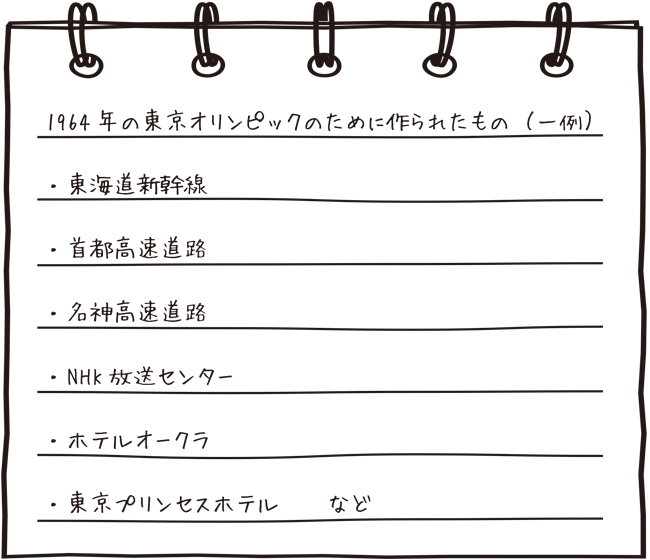 1964年の東京オリンピックのために作られたもの（一例）
・東海道新幹線
・首都高速道路
・名神高速道路
・NHK放送センター
・ホテルオークラ
・東京プリンセスホテル　　など